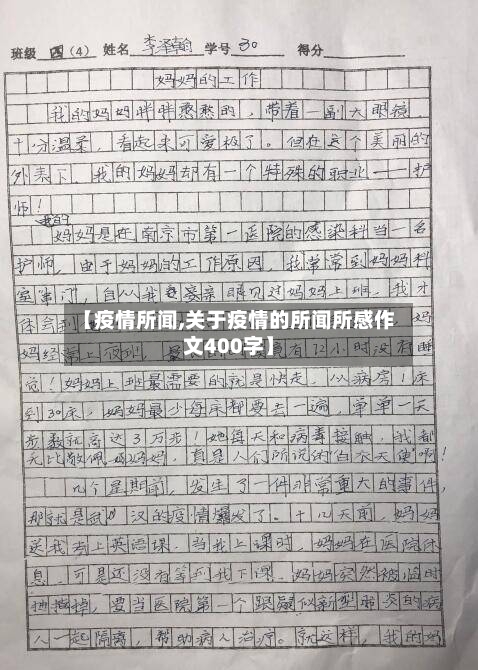 班级 四(4) 姓名 李泽翰 学号 30 得分
妈妈的工作
我的妈妈胖胖憨憨的，带着一副大眼镜，
十分温柔，看起来可爱极了。但在这个美丽的
外表下，我的妈妈却有一个特殊的职业——护
师！
我的
妈妈是在南京市第一医院的感染科当一名
护师，由于妈妈的工作原因，我常常到妈妈科
室串门，自从我亲眼见过妈妈上班，我才
体会到
【疫情所闻,关于疫情的所闻所感作
文400字】
妈经常上夜班，有12小时没有睡
觉！妈妈上班最需要的就是快走，从病房1床
到30床，妈妈最少每床都要去一遍，单单一天
步数就高达3万步！她每天和病毒接触，我都
无比敬佩妈妈，真是人们所说的“白衣天使”啊！
几个星期前，发生了一件非常重大的事件，
那就是武汉的疫情爆发了。十几天前，妈妈
送我去上英语课，当我上课时，妈妈在医院休
息，可是还没有等到我下课，妈妈突然被临时
，要当医院第一个跟疑似新型肺炎的病
人一起隔离，帮助病人治疗。就这样，我的妈